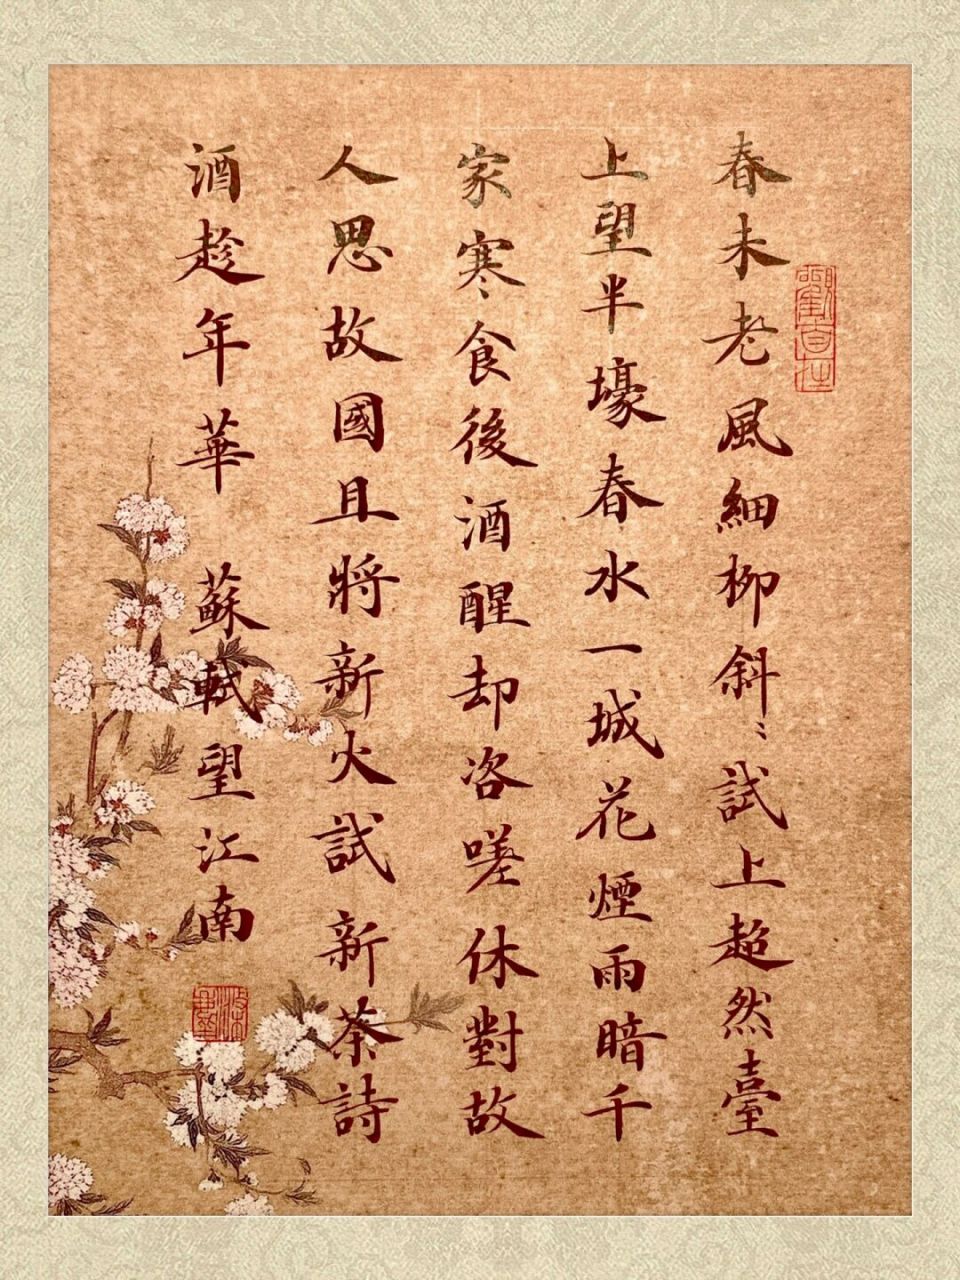 春未老風細柳斜〻試上超然臺
上望半壕春水一城花煙雨暗千
家寒食後酒醒却咨嗟休對故
人思故國且將新火試新茶詩
酒趁年華 蘇軾望江南
觀自在